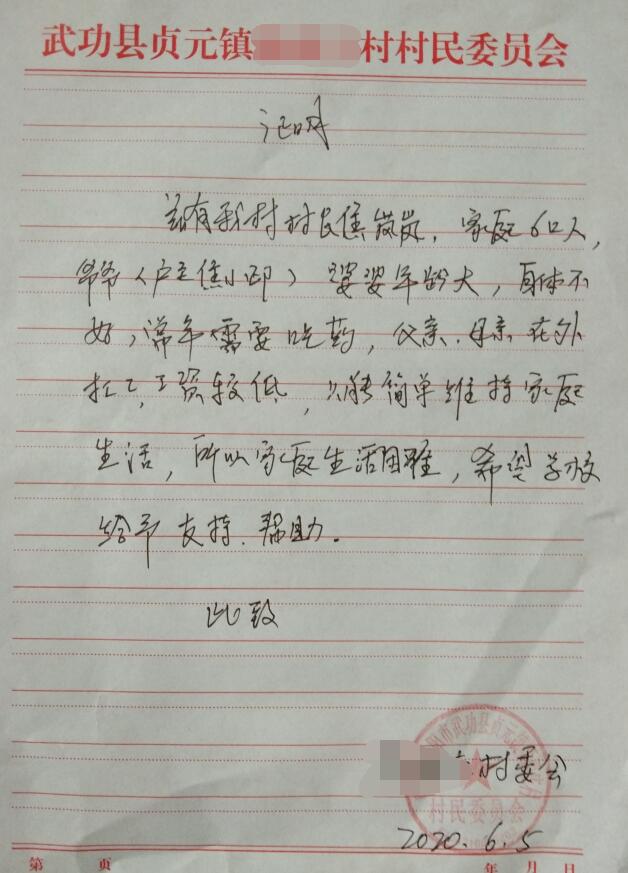 武功县贞元镇 村村民委员会
证明
兹有我村村民焦岚岚，家庭6口人，
爷爷（户主焦小印）婆婆年龄大，身体不
好，常年需要吃药，父亲.母亲在外
打工，工资较低，只能简单维持家庭
生活，所以家庭生活困难，希望学校
给予支持.帮助。
此致
市武功县贞元镇
村民委员会
村委会
2020.6.5
第 页 年 月 日